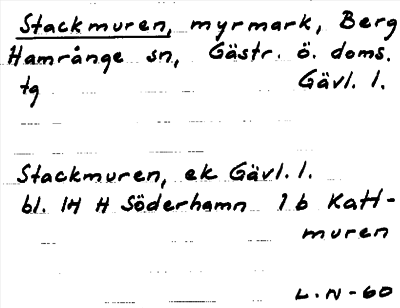 Stackmuren, myrmark, Berg
Hamrånge sn, Gästr. ö. doms.
tg Gävl. l.
Stackmuren, ek Gävl. l.
bl. 1H H Söderhamn 1 b Katt-
muren
L.N-60